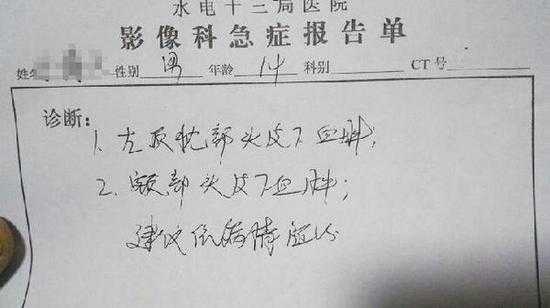 水电十三局医院
影像科急症报告单
姓名 性别 男 年龄 14 科别 CT号
诊断：
1. 左顶枕部头皮下血肿；
2. 额部头皮下血肿；
建议依病情随诊